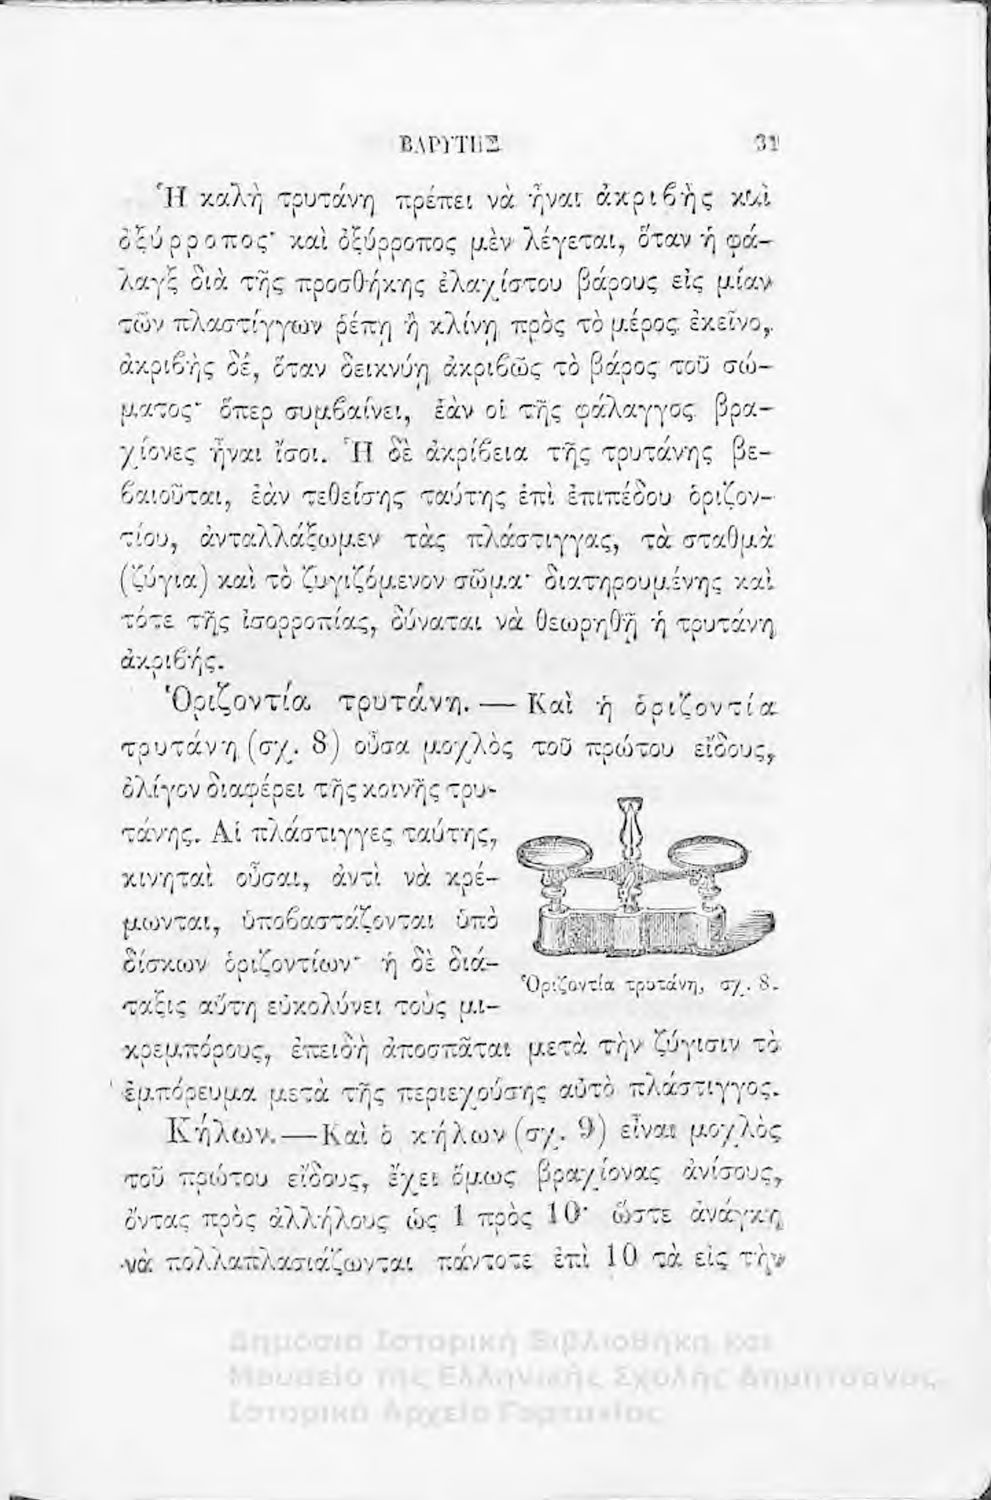 ΒΑΡΥΤΗΣ 31
Ἡ καλὴ τρυτάνη πρέπει νὰ ἦναι ἀκριβὴς καὶ
ὀξύρροπος· καὶ ὀξύρροπος μὲν λέγεται, ὅταν ἡ φά-
λαγξ διὰ τῆς προσθήκης ἐλαχίστου βάρους εἰς μίαν
τῶν πλαστίγγων ῥέπῃ ἢ κλίνῃ πρὸς τὸ μέρος ἐκεῖνο,
ἀκριβὴς δέ, ὅταν δεικνύῃ ἀκριβῶς τὸ βάρος τοῦ σώ-
ματος· ὅπερ συμβαίνει, ἐὰν οἱ τῆς φάλαγγος βρα-
χίονες ἦναι ἴσοι. Ἡ δὲ ἀκρίβεια τῆς τρυτάνης βε-
βαιοῦται, ἐὰν τεθείσης ταύτης ἐπὶ ἐπιπέδου ὁριζον-
τίου, ἀνταλλάξωμεν τὰς πλάστιγγας, τὰ σταθμὰ
(ζύγια) καὶ τὸ ζυγιζόμενον σῶμα· διατηρουμένης καὶ
τότε τῆς ἰσορροπίας, δύναται νὰ θεωρηθῇ ἡ τρυτάνη
ἀκριβής.
Ὁριζοντία τρυτάνη. — Καὶ ἡ ὁριζοντία
τρυτάνη (σχ. 8) οὖσα μοχλὸς τοῦ πρώτου εἴδους,
ὀλίγον διαφέρει τῆς κοινῆς τρυ-
τάνης. Αἱ πλάστιγγες ταύτης,
κινηταὶ οὖσαι, ἀντὶ νὰ κρέ-
μωνται, ὑποβαστάζονται ὑπὸ
δίσκων ὁριζοντίων· ἡ δὲ διά-
ταξις αὕτη εὐκολύνει τοὺς μι-
κρεμπόρους, ἐπειδὴ ἀποσπᾶται μετὰ τὴν ζύγισιν τὸ
ἐμπόρευμα μετὰ τῆς περιεχούσης αὐτὸ πλάστιγγος.
Ὁριζοντία τρυτάνη, σχ. 8.
Κήλων. — Καὶ ὁ κήλων (σχ. 9) εἶναι μοχλὸς
τοῦ πρώτου εἴδους, ἔχει ὅμως βραχίονας ἀνίσους,
ὄντας πρὸς ἀλλήλους ὡς 1 πρὸς 10· ὥστε ἀνάγκη
νὰ πολλαπλασιάζωνται πάντοτε ἐπὶ 10 τὰ εἰς τὴν
Δημόσια Ιστορική Βιβλιοθήκη και
Μουσείο της Ελληνικής Σχολής Δημητσάνας,
Ιστορικό Αρχείο Γορτυνίας